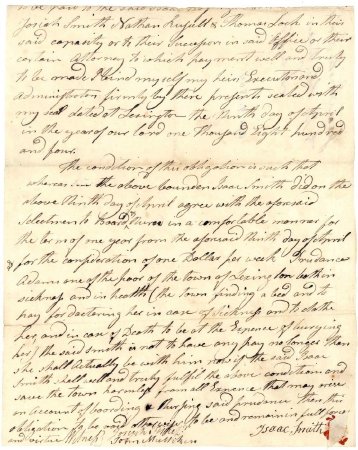 to be paid to the said
Josiah Smith Nathan Russell & Thomas Lock in their
said capacity or to their Successors in said Office or their
certain Attorney to which payment well and truly
to be made I bind myself my heirs Executors and
Administrators firmly by these presents sealed with
my seal dated at Lexington the thirth day of April
in the year of our Lord one thousand Eight hundred
and four.
The condition of this obligation is such that
whereas the above bounden Isaac Smith did on the
above thirth day of April agree with the aforesaid
Selectmen to Board & Nurse in a comfortable manner for
the term of one year from the aforesaid thirth day of April
for the consideration of one Dollar per week Prudance
Adams one of the poor of the town of Lexington both in
sickness and in health (the town finding a bed and to
pay for doctering her in case of sickness and to clothe
her, and in case of Death to be at the Expence of burying
her) the said Smith is not to have any pay no longer than
She shall actually be with him now if the said Isaac
Smith shall well and truly fulfil the above condition and
save the town harmless from all Expence that may arise
on account of boarding & Nursing said prudence then this
obligation to be void otherwise to be and remain in full force
and virtue Witness
John Mulliken
Isaac Smith